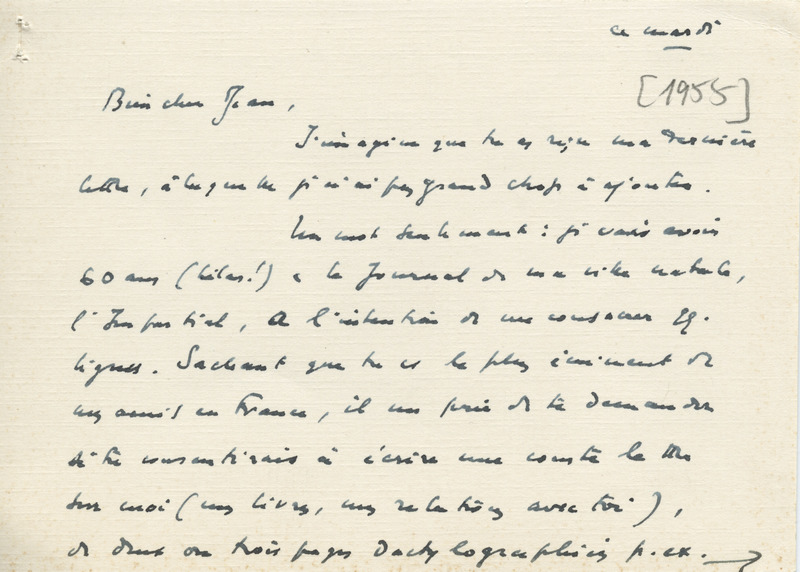 ce mardi
[1955]
Bien cher Jean,
J'imagine que tu as reçu ma dernière
lettre, à laquelle je n'ai pas grand chose à ajouter.
Un mot seulement : je vais avoir
60 ans (hélas!) & le Journal de ma ville natale,
l'Impartial, a l'intention de me consacrer qq.
lignes. Sachant que tu es le plus éminent de
mes amis en France, il me prie de te demander
si tu consentirais à écrire une courte lettre
sur moi (mes livres, mes relations avec toi),
de deux ou trois pages dactylographiées p. ex.